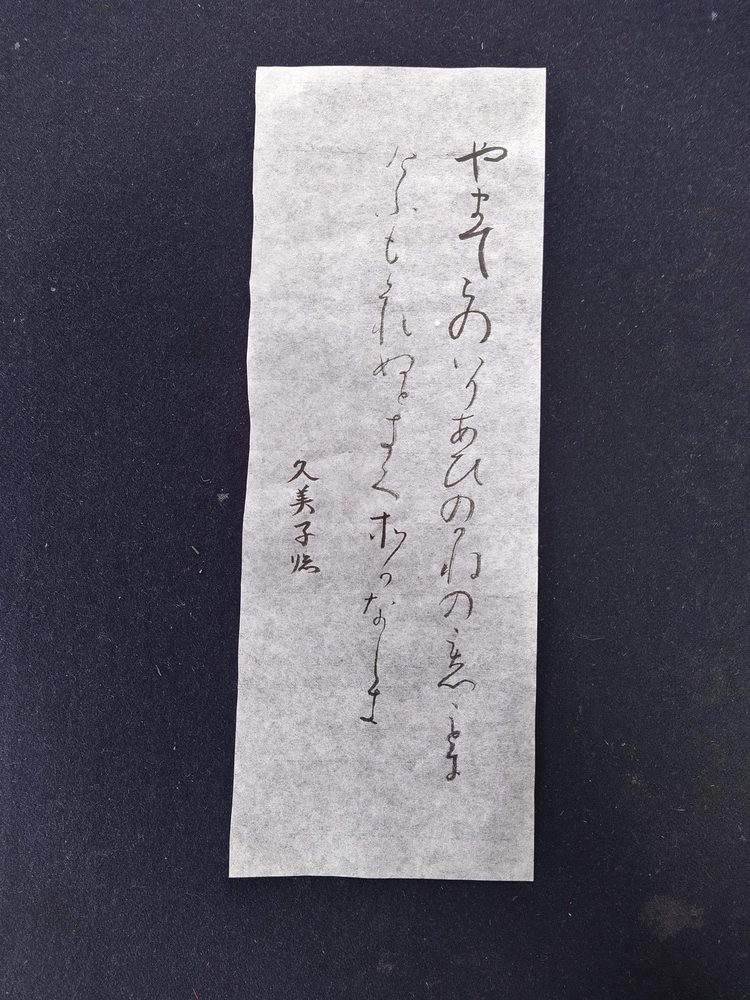 やまてらのいりあひのかねのこゑことに
けふもくれぬときくそかなしき
久美子臨